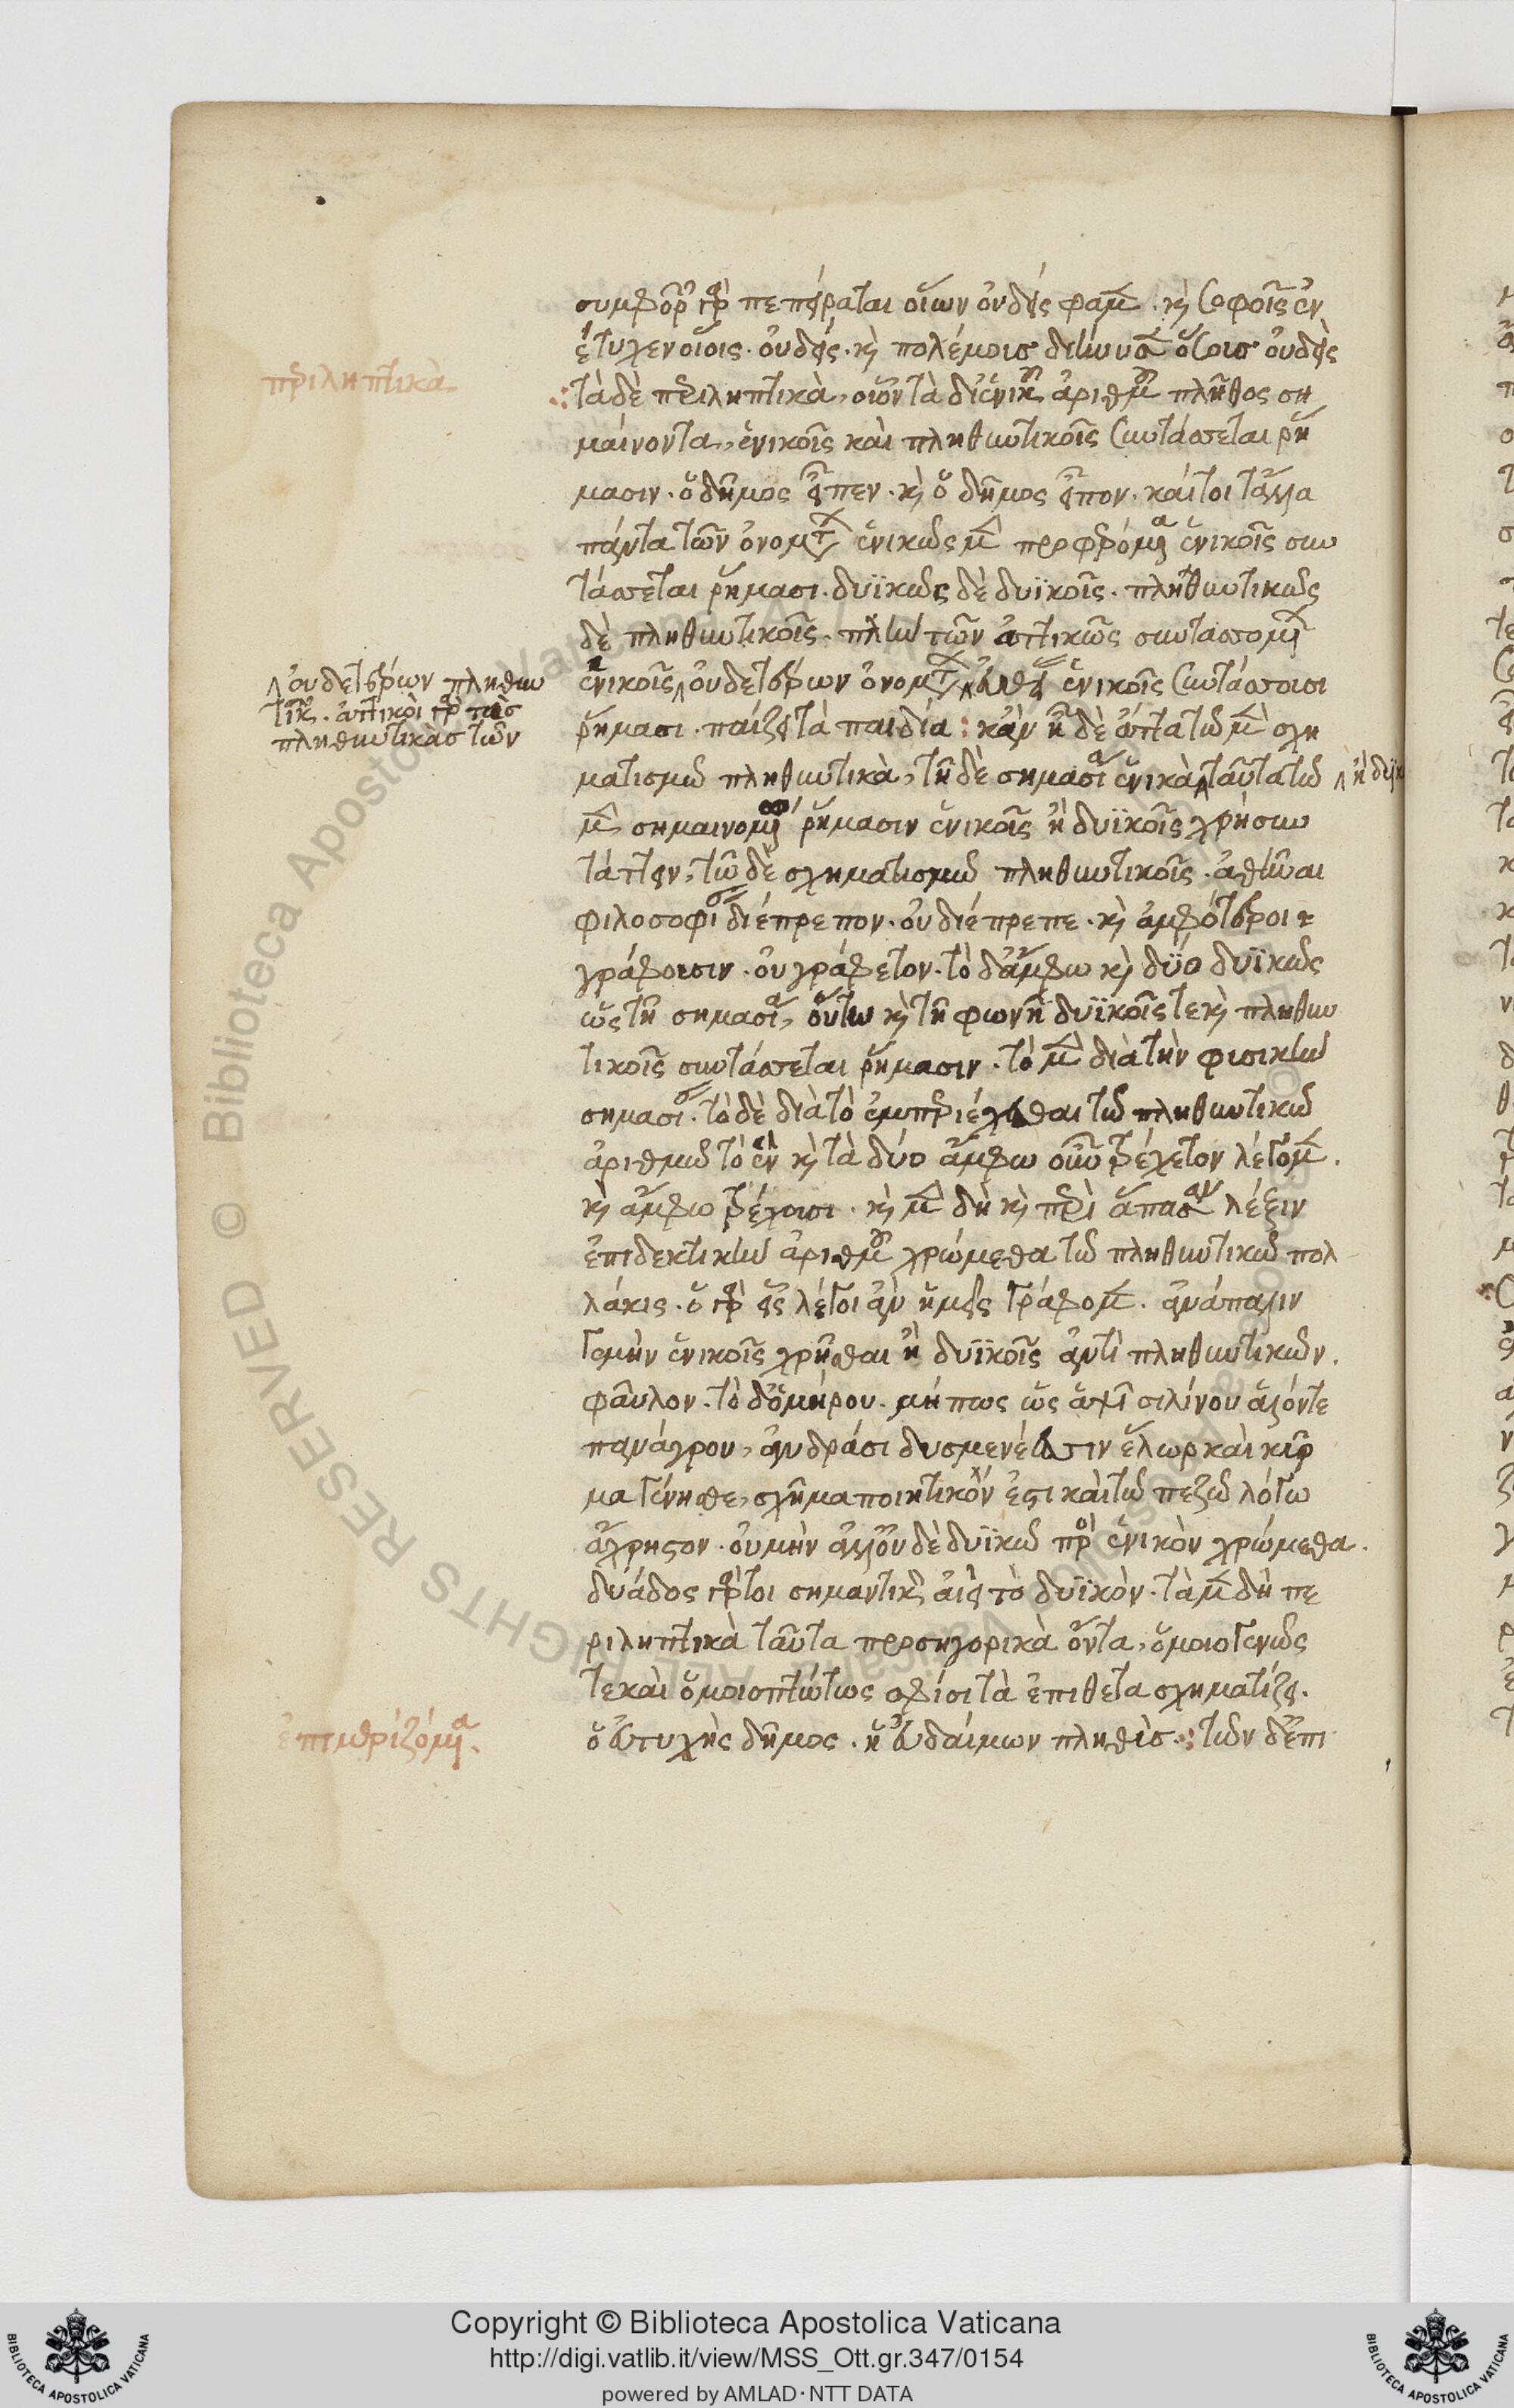 συμφορῶν γὰρ πεπείραται οἵων οὐδείς φαμεν. καὶ σοφοῖς ἐν
έτυχεν οἵοις οὐδείς. καὶ πολέμοις δεινοὺς ὅσοις οὐδεὶς
περιληπτικὰ
τὰ δὲ περιληπτικὰ, οἷον τὰ δι' ἑνικοῦ ἀριθμοῦ πλῆθος ση
μαίνοντα, ἑνικοῖς καὶ πληθυντικοῖς συντάσσεται ῥή
μασιν. ὁ δῆμος εἶπεν. καὶ ὁ δῆμος εἶπον. καίτοι τἄλλα
πάντα τῶν ὀνομάτων ἑνικῶς μὲν προφερόμενα ἑνικοῖς συν
τάσσεται ῥήμασι. δυϊκῶς δὲ δυϊκοῖς. πληθυντικῶς
δὲ πληθυντικοῖς. πλὴν τῶν ἀττικῶς συντασσομένων
οὐδετέρων πληθυν
τικῶν. ἀττικοὶ γὰρ τὰς
πληθυντικὰς τῶν
ἑνικοῖς οὐδετέρων ὀνομάτων εὐθείας ἑνικοῖς συντάσσουσι
ῥήμασι. παίζει τὰ παιδία: κἂν ᾖ δὲ ἄττα τῶ μὲν σχη
ματισμῶ πληθυντικὰ, τῆ δὲ σημασία ἑνικὰ ταῦτα τῶ
ἢ δυϊκὰ
μὲν σημαινομένω ῥήμασιν ἑνικοῖς ἢ δυϊκοῖς χρὴ συν
τάττειν, τῶ δὲ σχηματισμῶ πληθυντικοῖς. ἀθῆναι
φιλοσοφίας διέπρεπον. οὐ διέπρεπε. καὶ ἀμφότεροι
γράφουσιν. οὐ γράφετον. τὸ δ' ἄμφω καὶ δύο δυϊκῶς
ὡς τῆ σημασία, οὕτω καὶ τῆ φωνῆ δυϊκοῖς τε καὶ πληθυν
τικοῖς συντάσσεται ῥήμασιν. τὸ μὲν διὰ τὴν φυσικὴν
σημασίαν. τὸ δὲ διὰ τὸ ἐμπεριέχεσθαι τῶ πληθυντικῶ
ἀριθμῶ τὸ ἓν καὶ τὰ δύο ἄμφω οὖν τρέχετον λέγομεν.
καὶ ἄμφω τρέχουσι. καὶ μὲν δὴ καὶ περὶ ἅπασαν λέξιν
ἐπιδεκτικὴν ἀριθμοῦ χρώμεθα τῶ πληθυντικῶ πολ
λάκις. ὃ γὰρ εἷς λέγοι ἂν ἡμεῖς γράφομεν. ἀνάπαλιν
γε μὴν ἑνικοῖς χρῆσθαι ἢ δυϊκοῖς ἀντὶ πληθυντικῶν.
φαῦλον. τὸ δ' ὁμήρου. μή πως ὡς ἁψῖσι λίνου ἁλόντε
πανάγρου, ἀνδράσι δυσμενέεσσιν ἕλωρ καὶ κύρ
μα γένησθε, σχῆμα ποιητικόν ἐστι καὶ τῶ πεζῶ λόγω
ἄχρηστον. οὐ μὴν ἀλλ' οὐδὲ δυϊκῶ πρὸς ἑνικὸν χρώμεθα.
δυάδος γάρ τοι σημαντικὸν ἀεὶ τὸ δυϊκὸν. τὰ μὲν δὴ πε
ριληπτικὰ ταῦτα προσηγορικὰ ὄντα, ὁμοιογενῶς
τε καὶ ὁμοιοπτώτως σφίσι τὰ ἐπίθετα σχηματίζει.
ἐπιμεριζόμενα.
ὁ εὐτυχὴς δῆμος. ἡ εὐδαίμων πληθὺς. τῶν δ' ἐπι
Copyright © Biblioteca Apostolica Vaticana
http://digi.vatlib.it/view/MSS_Ott.gr.347/0154
powered by AMLAD·NTT DATA